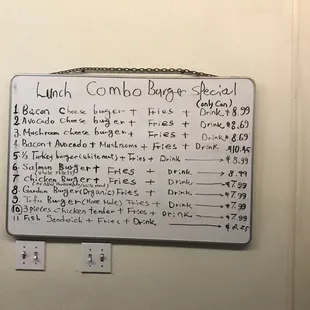 Lunch Combo Burger Special
(only Can)
1 Bacon Cheese burger + Fries + Drink $8.99
2 Avocado Cheese burger + Fries + Drink $8.69
3. Mushroom cheese burger + Fries + Drink $8.69
4. Bacon + Avocado + Mushrooms + Fries + Drink $10.45
5 1/3 Turkey burger (white meat) + Fries + Drink $8.99
6 Salmon Burger + Fries + Drink 8.99
7 Chicken Burger + Fries + Drink $7.99
8 Garden Burger (Organic) Fries + Drink $7.99
9 Tofu Burger (Home Made) Fries + Drink $7.99
10 3 pieces chicken tender + Fries + Drink $7.99
11 Fish Sandwich + Fries + Drink